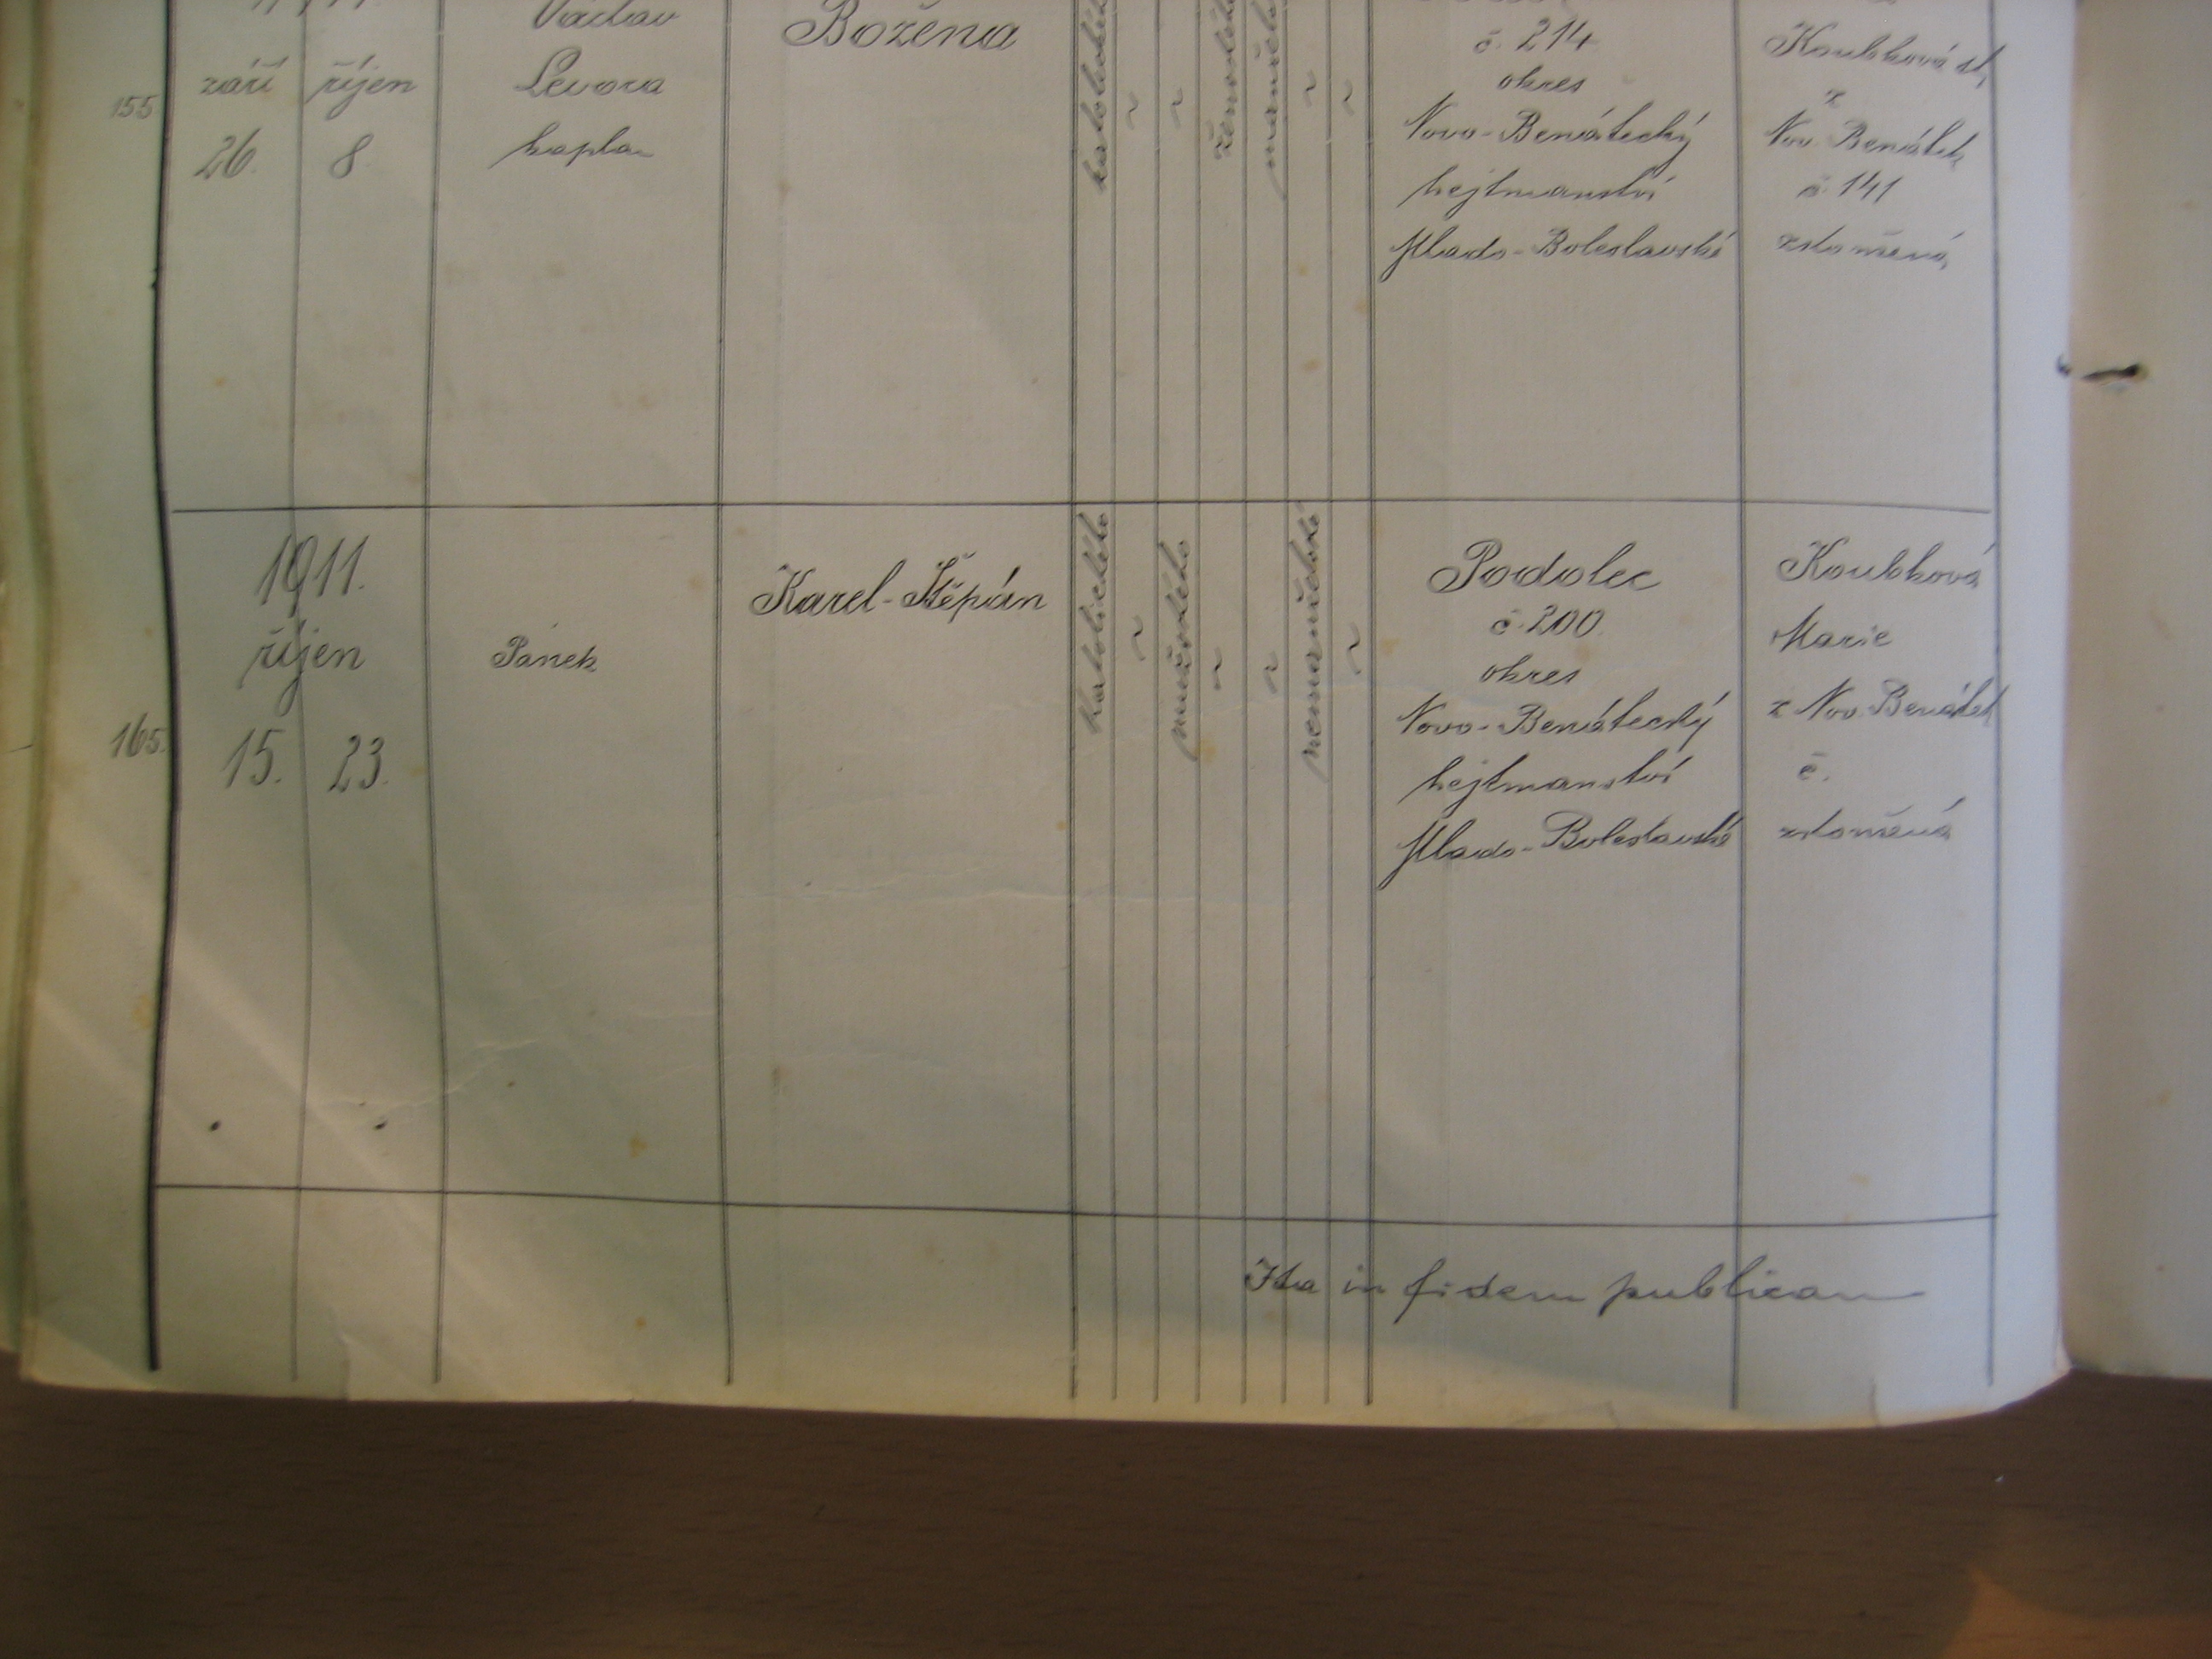 Václav Božena katolického ženského manželské č. 214 Koubková st.
září říjen Levora okres z
155 26. 8. kaplan Novo-Benátecký Nov. Benátek
hejtmanství č. 141
Mlado-Boleslavské zkoušená
1911. Karel-Štěpán katolického mužského nemanželské Podolec Koubková
říjen Pánek č. 200 Marie
okres
165. 15. 23. Novo-Benátecký z Nov. Benátek
hejtmanství č.
Mlado-Boleslavské zkoušená
Ita in fidem publicam